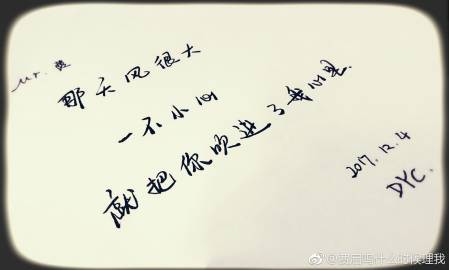 Mr.
那天风很大
一不小心
就把你吹进了我心里.
2017.12.4
DYC.